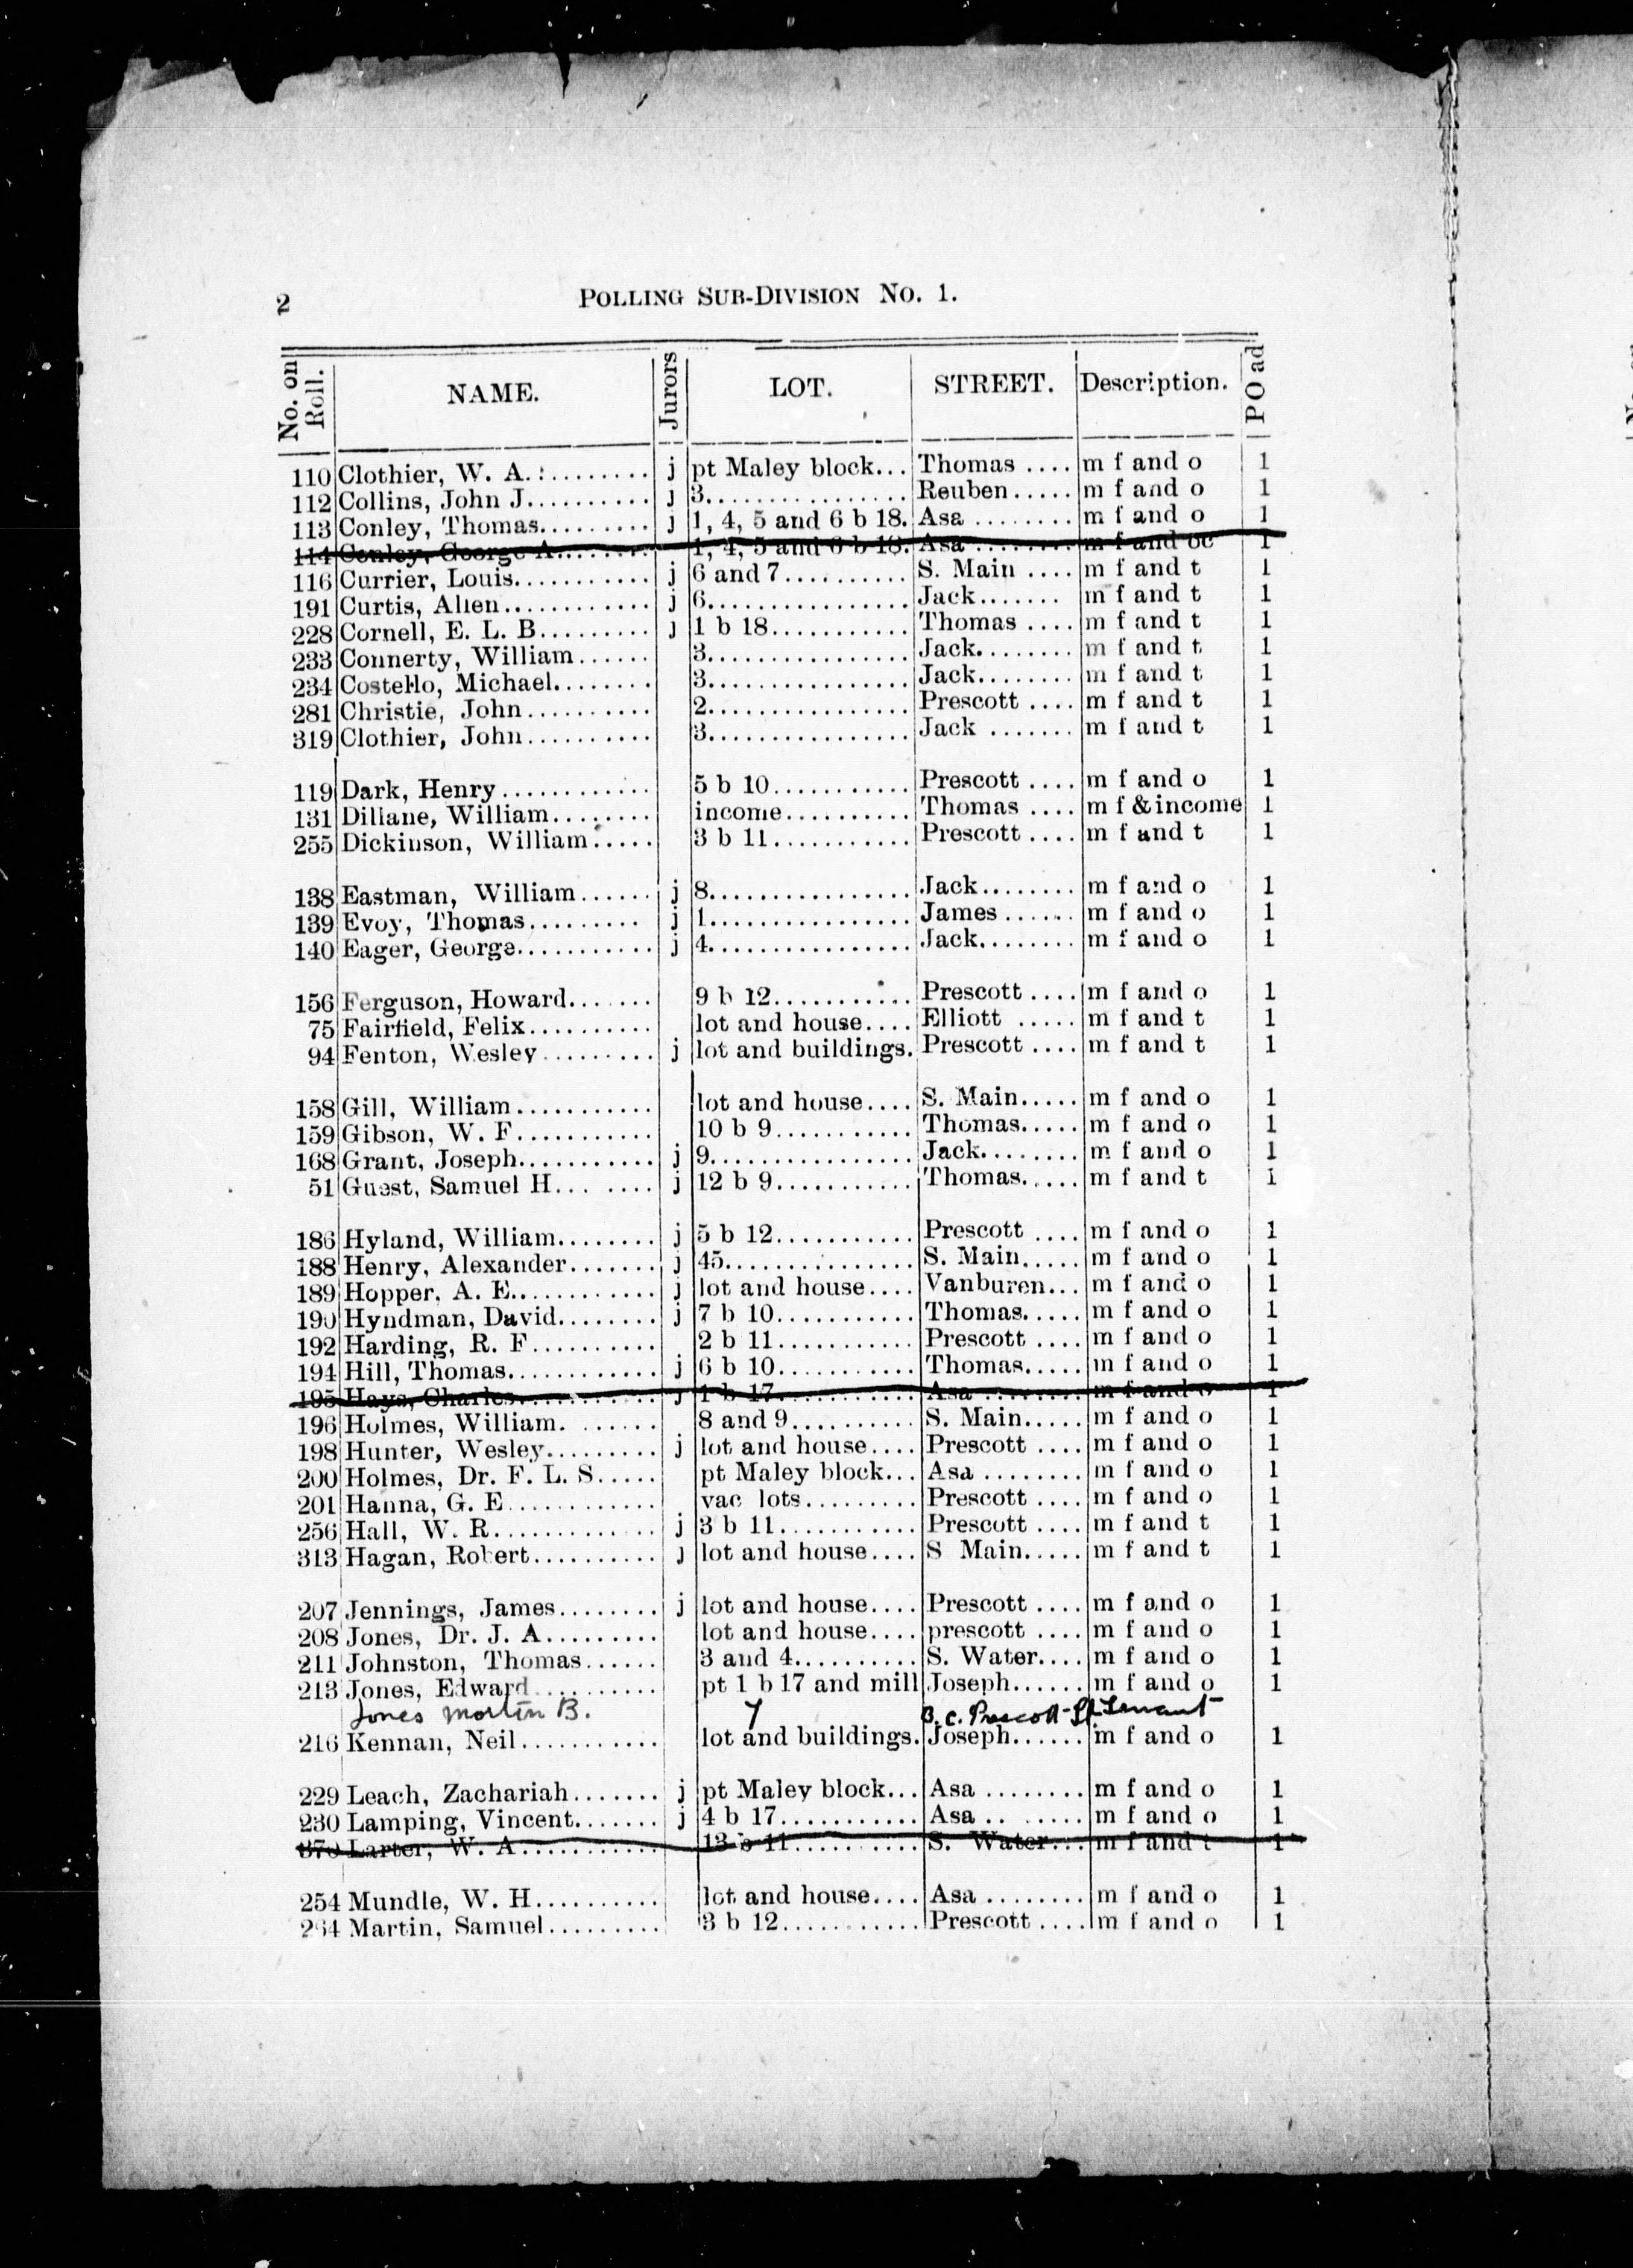 2 POLLING SUB-DIVISION No. 1.
No. on Roll. NAME. Jurors LOT. STREET. Description. PO ad
110 Clothier, W. A. :......... j pt Maley block... Thomas .... m f and o 1
112 Collins, John J.......... j 3................ Reuben..... m f and o 1
113 Conley, Thomas......... j 1, 4, 5 and 6 b 18. Asa ........ m f and o 1
114 Conley, George A........ 1, 4, 5 and 6 b 18. Asa ........ m f and oc 1
116 Currier, Louis........... j 6 and 7.......... S. Main .... m f and t 1
191 Curtis, Allen............ j 6................ Jack....... m f and t 1
228 Cornell, E. L. B......... j 1 b 18........... Thomas .... m f and t 1
233 Connerty, William...... 3................ Jack........ m f and t 1
234 Costello, Michael........ 3................ Jack........ m f and t 1
281 Christie, John.......... 2................ Prescott .... m f and t 1
319 Clothier, John.......... 3................ Jack ....... m f and t 1
119 Dark, Henry............ 5 b 10........... Prescott .... m f and o 1
131 Dillane, William........ income.......... Thomas .... m f & income 1
255 Dickinson, William..... 3 b 11........... Prescott .... m f and t 1
138 Eastman, William...... j 8................ Jack........ m f and o 1
139 Evoy, Thomas......... j 1................ James...... m f and o 1
140 Eager, George........... j 4................ Jack........ m f and o 1
156 Ferguson, Howard....... 9 b 12........... Prescott .... m f and o 1
75 Fairfield, Felix.......... lot and house.... Elliott ..... m f and t 1
94 Fenton, Wesley......... j lot and buildings. Prescott .... m f and t 1
158 Gill, William........... lot and house.... S. Main..... m f and o 1
159 Gibson, W. F........... 10 b 9........... Thomas..... m f and o 1
168 Grant, Joseph........... j 9................ Jack........ m f and o 1
51 Guest, Samuel H... .... j 12 b 9........... Thomas..... m f and t 1
186 Hyland, William........ j 5 b 12........... Prescott .... m f and o 1
188 Henry, Alexander....... j 45............... S. Main..... m f and o 1
189 Hopper, A. E............ j lot and house.... Vanburen... m f and o 1
190 Hyndman, David........ j 7 b 10........... Thomas..... m f and o 1
192 Harding, R. F.......... 2 b 11........... Prescott .... m f and o 1
194 Hill, Thomas............ j 6 b 10........... Thomas..... m f and o 1
195 Hays, Charles........... j 1 b 17........... Asa ........ m f and o 1
196 Holmes, William. ....... 8 and 9.......... S. Main..... m f and o 1
198 Hunter, Wesley......... j lot and house.... Prescott .... m f and o 1
200 Holmes, Dr. F. L. S..... pt Maley block... Asa ........ m f and o 1
201 Hanna, G. E............ vac lots......... Prescott .... m f and o 1
256 Hall, W. R.............. j 3 b 11........... Prescott .... m f and t 1
313 Hagan, Robert.......... j lot and house.... S Main..... m f and t 1
207 Jennings, James........ j lot and house.... Prescott .... m f and o 1
208 Jones, Dr. J. A......... lot and house.... prescott .... m f and o 1
211 Johnston, Thomas...... 3 and 4.......... S. Water.... m f and o 1
213 Jones, Edward.......... pt 1 b 17 and mill Joseph...... m f and o 1
Jones Martin B. 7 B. C. Prescott St Tenant
216 Kennan, Neil........... lot and buildings. Joseph...... m f and o 1
229 Leach, Zachariah....... j pt Maley block... Asa ........ m f and o 1
230 Lamping, Vincent....... j 4 b 17........... Asa .. ...... m f and o 1
370 Larter, W. A........... 13 b 11.......... S. Water... m f and t 1
254 Mundle, W. H.......... lot and house.... Asa ........ m f and o 1
264 Martin, Samuel......... 3 b 12........... Prescott .... m f and o 1